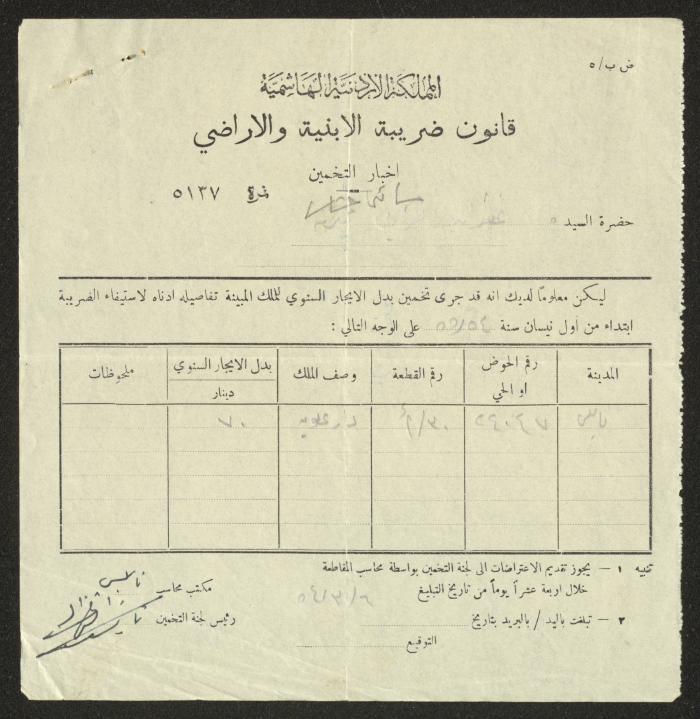 ض ب/ ٥
المملكة الاردنية الهاشمية
قانون ضريبة الابنية والاراضي
اخبار التخمين
نمرة ٥١٣٧
حضرة السيد
ليكن معلوماً لديك انه قد جرى تخمين بدل الايجار السنوي للملك المبينة تفاصيله ادناه لاستيفاء الضريبة
ابتداء من أول نيسان سنة ٥٥/٥٤ على الوجه التالي :
المدينة
رقم الحوض او الحي
رقم القطعة
وصف الملك
بدل الايجار السنوي
دينار
ملحوظات
نابلس
دار علويه
٧٠
تنبيه ١ — يجوز تقديم الاعتراضات الى لجنة التخمين بواسطة محاسب المقاطعة
خلال اربعة عشر يوماً من تاريخ التبليغ
٢ — تبلغت باليد / بالبريد بتاريخ
التوقيع
مكتب محاسب نابلس
رئيس لجنة التخمين